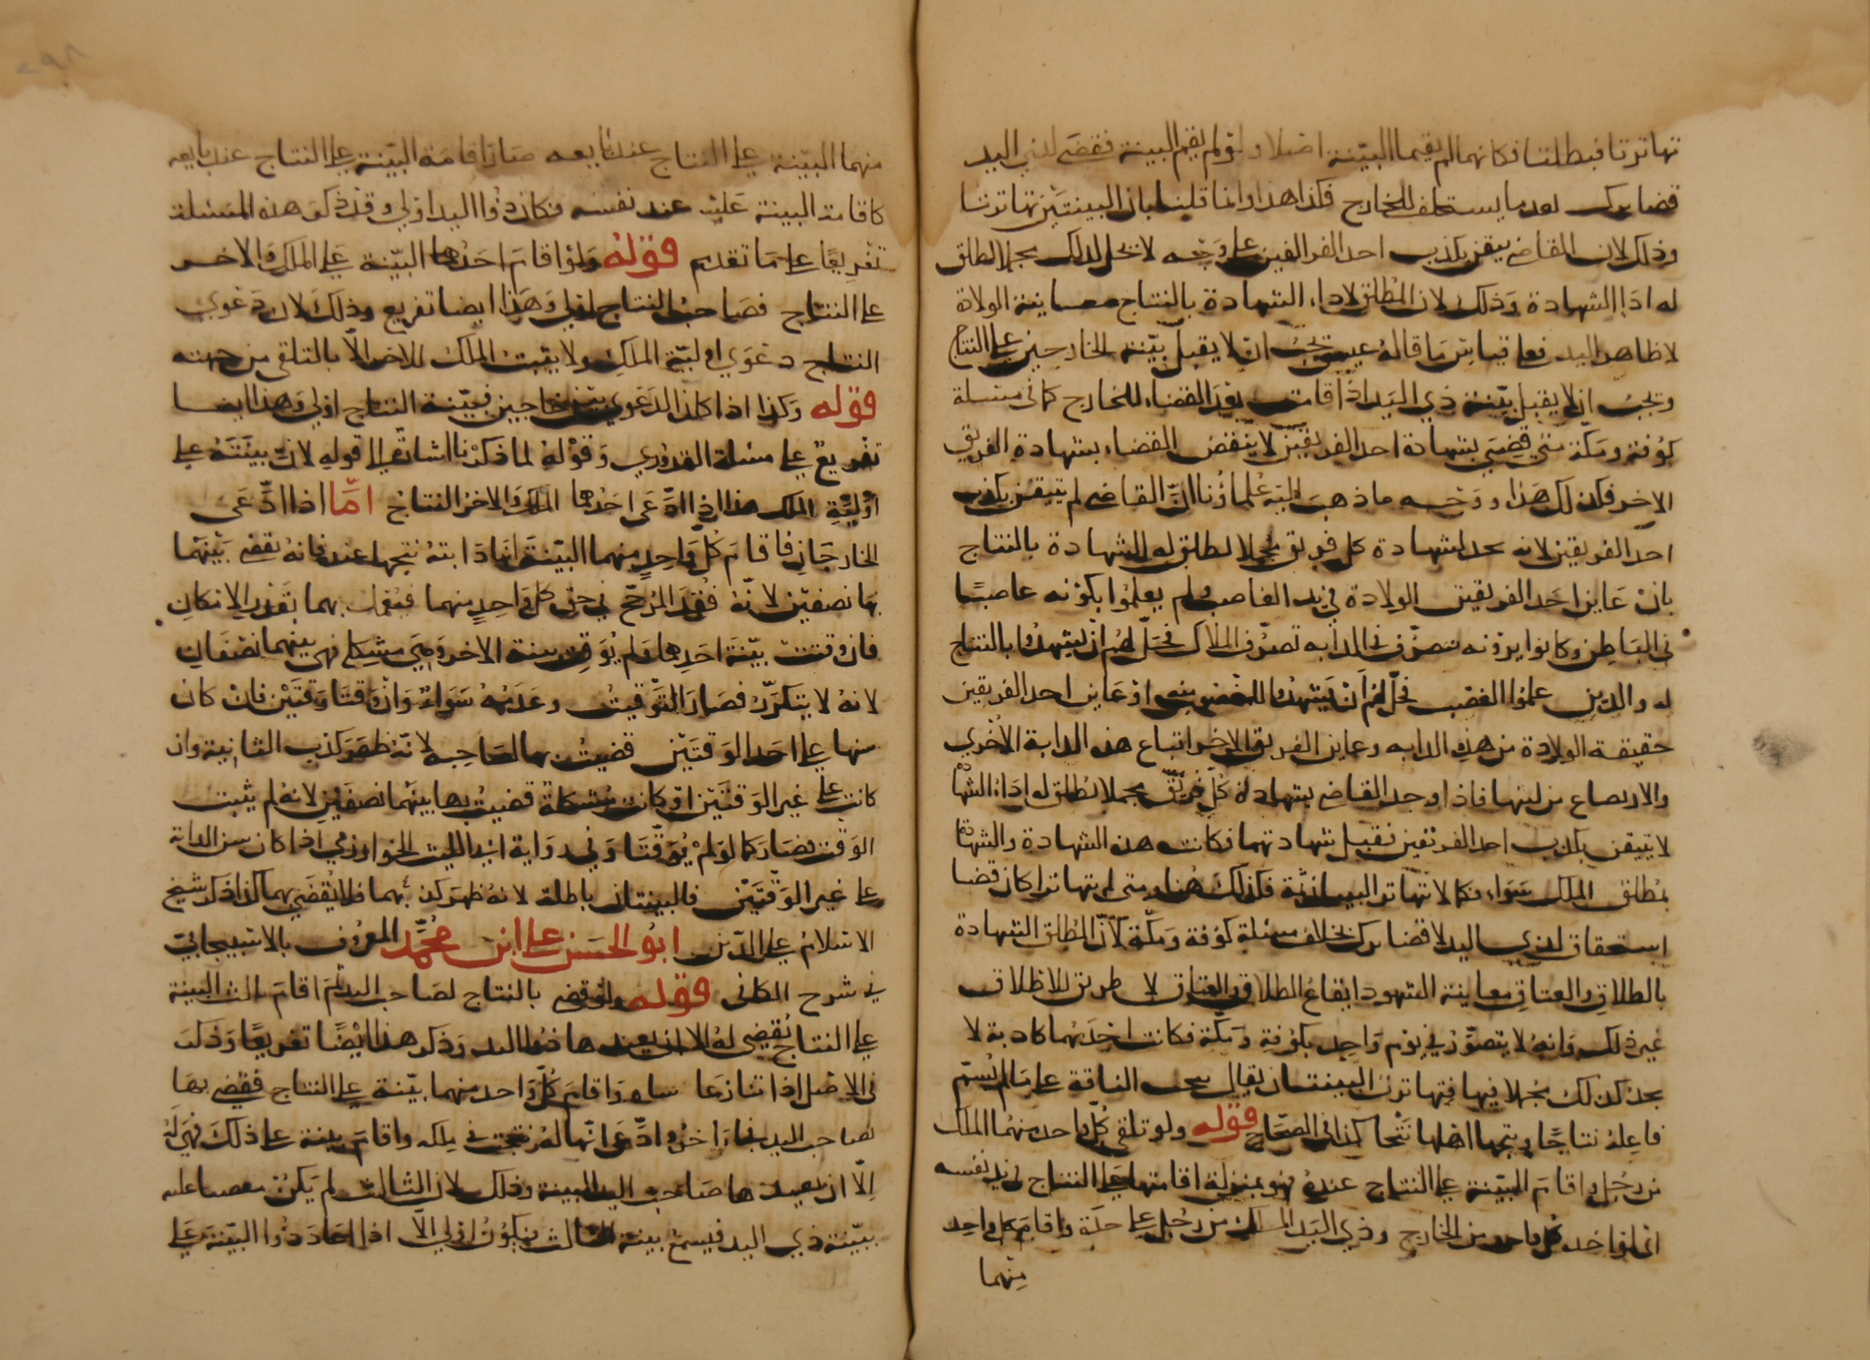 تهاترتا فبطلتا فكانهما لم يقيما البينة اصلا ولو لم يقم البينة فقضى لذي اليد
قضا ترك بعد ما يستحلف للخارج فكذا هذا وانما قلنا بان البينتين تهاترتا
وذلك لان القاضي تيقن بكذب احد الفريقين على وجه لا يحل لذلك
له اداء الشهادة وذلك لان المطلق لاداء الشهادة بالنتاج معاينة الولادة
لا ظاهر اليد فعلى قياس ما قاله عيسى يجب ان لا يقبل بينة الخارجين على النتاج
ويجب ان لا يقبل بينة ذي اليد اذا قامت بعد القضاء للخارج كما في مسئلة
كوفة ومكة متى قضى بشهادة احد الفريقين لا ينقض القضاء بشهادة الفريق
الاخر فكذلك هذا ووجه ما ذهب اليه علماؤنا ان القاضي لم يتيقن بكذب
احد الفريقين لانه يجد لشهادة كل فريق محملا يطلق له الشهادة بالنتاج
بان عاين احد الفريقين الولادة في يد الغاصب ولم يعلموا بكونه غاصبًا
في الباطن وكانوا يرونه يتصرف في الدابه تصرف الملاك فحل لهم ان يشهدوا بالنتاج
له والذين علموا الغصب فحل لهم ان يشهدوا للمغصوب منه او عاين احد الفريقين
حقيقة الولادة من هذه الدابه وعاين الفريق الاخر اتباع هذه الدابة الاخرى
والارتضاع من لبنها فاذا وجد القاضي بشهادة كل فريق محملا يطلق له اداء الشها
لا يتيقن بكذب احد الفريقين فقبل شهادتهما فكانت هذه الشهادة والشهادة
بمطلق الملك سواء فكما لا تتهاتر البينتان ثمة فكذلك هنا ومتى لم يتهاترا كان قضا
استحقاق لذي اليد لا قضا ترك بخلاف مسئلة كوفة ومكة لان المطلق الشهادة
بالطلاق والعتاق معاينة الشهود ايقاع الطلاق والعتاق لا طريق للاطلاق
غير ذلك وانه لا يتصور في يوم واحد بكوفة ومكة فكانت احداهما كاذبة لا
يجد كذلك محملا فيها فتهاترت البينتان يقال نتجت الناقة على ما لم يسم
فاعله نتاجًا ونتجها اهلها نتجا كذا في الصحاح قوله ولو تلقى كل واحد منهما الملك
من رجل واقام البينة على النتاج عنده فهو بمنزلة اقامتها على النتاج في يد نفسه
اي لو اخذ كل واحد من الخارج وذي اليد الملك من رجل على حدة واقام كل واحد
منهما
منهما البينة على النتاج عند بايعه صار اقامة البينة على النتاج عند بايعه
كاقامة البينة عليه عند نفسه فكان ذوا اليد اولى وقد ذكر هذه المسئلة
تفريعًا على ما تقدم قوله ولو اقام احدهما البينة على الملك والاخر
على النتاج فصاحب النتاج اولى وهذا ايضا تفريع وذلك لان دعوى
النتاج دعوى اولية الملك ولا يثبت الملك للاخر الا بالتلقي من جهته
قوله وكذا اذا كان الدعوى بين خارجين فبينة النتاج اولى وهذا ايضا
تفريع على مسئلة القدوري وقوله لما ذكرنا اشارة الى قوله لان بينته على
اولية الملك هذا اذا ادعى احدهما الملك والاخر النتاج اما اذا ادعى
الخارجان فاقام كل واحد منهما البينة انها دابته نتجها عنده فانه يقضي بينهما
بها نصفين لانه فقد المرجح في حق كل واحد منهما فيعمل بهما بقدر الامكان
فان وقتت بينة احدهما ولم يوقت بينة الاخر وهي مشكلة فهي بينهما نصفان
لانه لا يتكرر فصار التوقيت وعدمه سواء وان وقتا وقتين فان كان
سنها على احد الوقتين قضيت بها لصاحبه لانه ظهر كذب الثانية وان
كانت على غير الوقتين او كانت مشكلة قضيت بها بينهما نصفين لانه لم يثبت
الوقت فصار كما لو لم يوقتا وفي رواية ابي الليث الخوارزمي اذا كان سن الدابة
على غير الوقتين فالبينتان باطلة لانه ظهر كذبهما فلا يقضى بهما كذا ذكر شيخ
الاسلام على الدين ابو الحسن على ابن محمد المعروف بالاسبيجابي
في شرح الكافي قوله ولو قضي بالنتاج لصاحب اليد ثم اقام ثالث البينة
على النتاج يقضى له الا ان يعيدها ذوا اليد وذكر هذا ايضًا تفريعًا وذلك
في الاصل اذا تنازعا واقام كل واحد منهما بينة على النتاج فقضي بها
لصاحب اليد فجاء اخر وادعى انها له نتجت في ملكه واقام بينة على ذلك فهي له
الا ان يعيدها صاحب اليد البينة وذلك لان الثالث لم يكن مقضيا عليه
ببينة ذي اليد فيسمع بينة الثالث فيكون اولى الا اذا اعاد ذوا البينة على